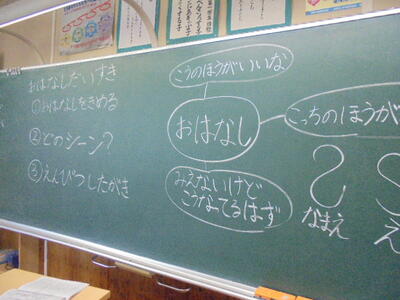 おはなしだいすき
①おはなしをきめる
②どのシーン?
③えんぴつしたがき
こうのほうがいいな
おはなし
こっちのほうが
みえないけど
こうなってるはず
なまえ
え